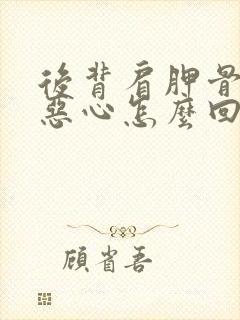 後背肩胛骨
惡心怎麼回
顧省吾